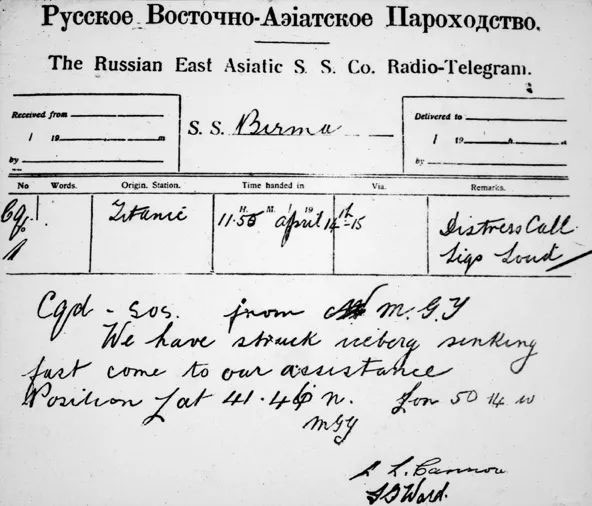 Русское Восточно-Азіатское Пароходство.
The Russian East Asiatic S. S. Co. Radio-Telegram.
Received from
19 m
by
S. S. Birma
Delivered to
19
by
No Words. Origin. Station. Time handed in Via. Remarks.
H. M. 19
Titanic 11.50 April 14th-15 Distress Call
Sigs Loud
Cqd - SOS. from M.G.Y
We have struck iceberg sinking
fast come to our assistance
Position Lat 41.46 n. Lon 50 14 w
MGY
Cannon
Ward.